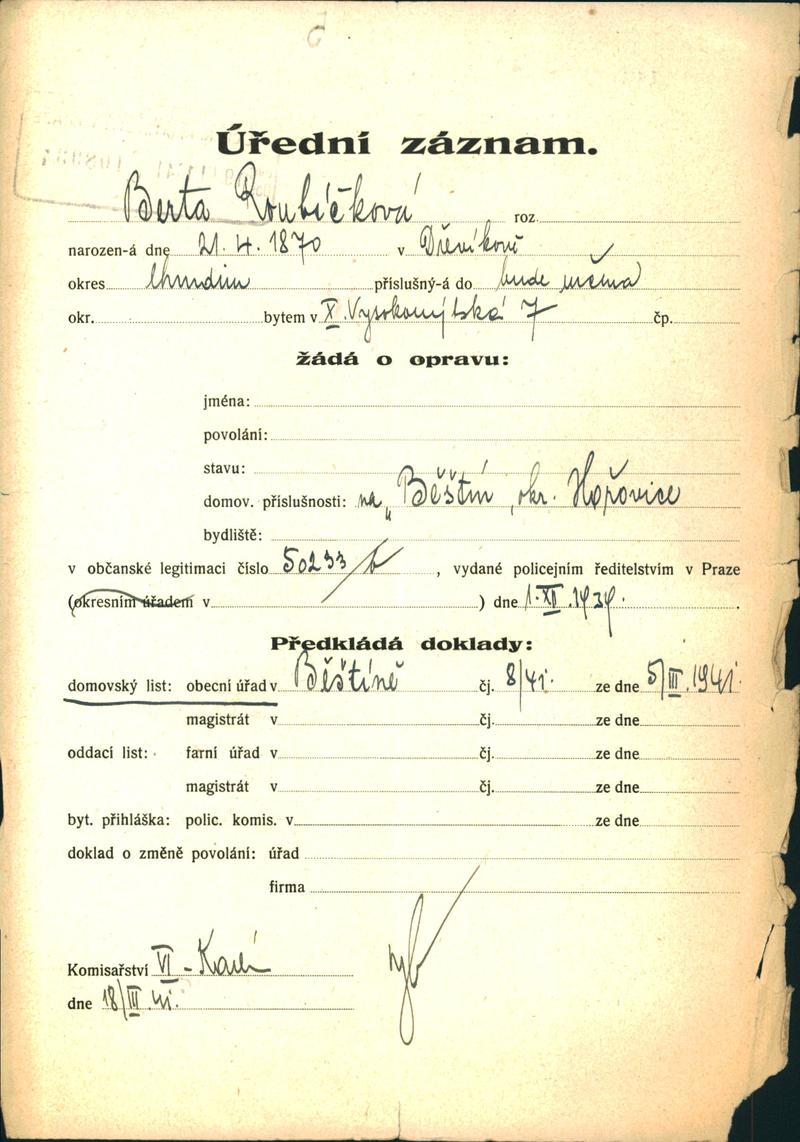 Úřední záznam.
Berta Roubíčková roz.
narozen-á dne 21. 4. 1870 v Dřevíkově
okres Chrudim příslušný-á do bude určena
okr. bytem v X. Vysokomýtská 7 čp.
žádá o opravu:
jména:
povolání:
stavu:
domov. příslušnosti: na „Běštín, okr. Hořovice
bydliště:
v občanské legitimaci číslo 50233/b, vydané policejním ředitelstvím v Praze
(okresním úřadem v ) dne 1. XII. 1939.
Předkládá doklady:
domovský list: obecní úřad v Běštíně čj. 8/41. ze dne 5/III. 1941.
magistrát v čj. ze dne
oddací list: farní úřad v čj. ze dne
magistrát v čj. ze dne
byt. přihláška: polic. komis. v ze dne
doklad o změně povolání: úřad
firma
Komisařství VI - Karlí
dne 18/III. 41.